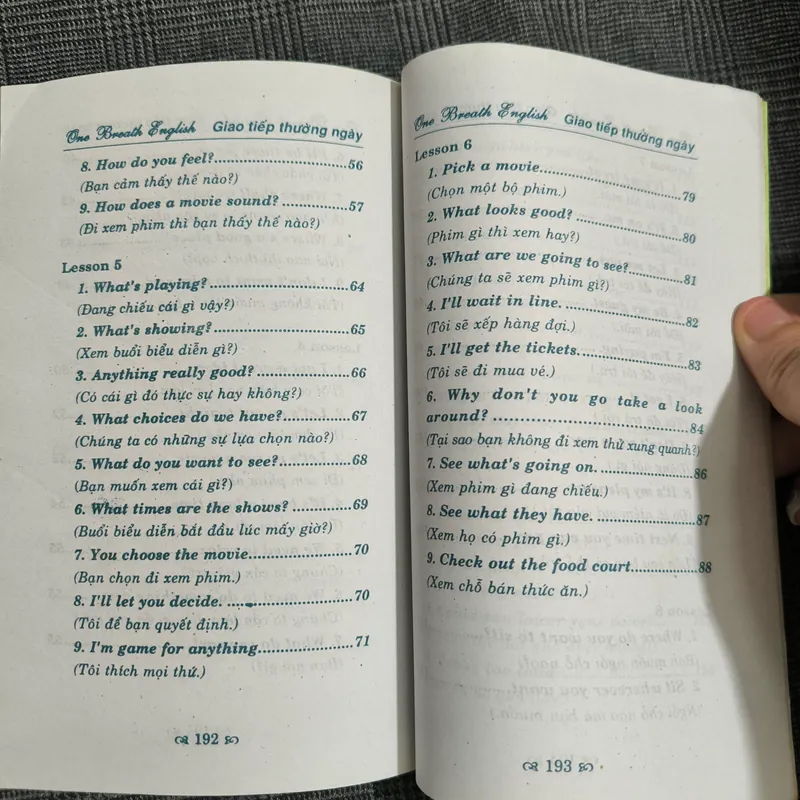 One Breath English Giao tiếp thường ngày
8. How do you feel?..............................56
(Bạn cảm thấy thế nào?)
9. How does a movie sound? ...............57
(Đi xem phim thì bạn thấy thế nào?)
Lesson 5
1. What's playing?................................64
(Đang chiếu cái gì vậy?)
2. What's showing?...............................65
(Xem buổi biểu diễn gì?)
3. Anything really good?.....................66
(Có cái gì đó thực sự hay không?)
4. What choices do we have?...............67
(Chúng ta có những sự lựa chọn nào?)
5. What do you want to see?................68
(Bạn muốn xem cái gì?)
6. What times are the shows? .............69
(Buổi biểu diễn bắt đầu lúc mấy giờ?)
7. You choose the movie.......................70
(Bạn chọn đi xem phim.)
8. I'll let you decide. ............................70
(Tôi để bạn quyết định.)
9. I'm game for anything.....................71
(Tôi thích mọi thứ.)
192
One Breath English Giao tiếp thường ngày
Lesson 6
1. Pick a movie.....................................79
(Chọn một bộ phim.)
2. What looks good? ............................80
(Phim gì thì xem hay?)
3. What are we going to see?...............81
(Chúng ta sẽ xem phim gì?)
4. I'll wait in line. ...............................82
(Tôi sẽ xếp hàng đợi.)
5. I'll get the tickets.............................83
(Tôi sẽ đi mua vé.)
6. Why don't you go take a look
around? ................................................84
(Tại sao bạn không đi xem thử xung quanh?)
7. See what's going on. .......................86
(Xem phim gì đang chiếu.)
8. See what they have. ........................87
(Xem họ có phim gì.)
9. Check out the food court.................88
(Xem chỗ bán thức ăn.)
193